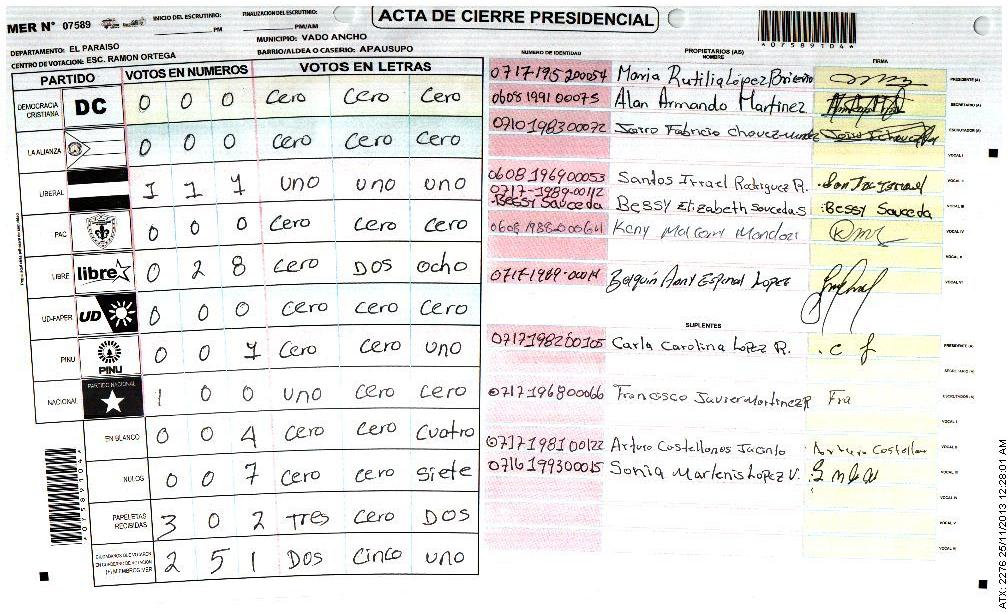 MER N° 07589
INICIO DEL ESCRUTINIO: PM
FINALIZACION DEL ESCRUTINIO: PM/AM
ACTA DE CIERRE PRESIDENCIAL
*07589104*
DEPARTAMENTO: EL PARAISO
MUNICIPIO: VADO ANCHO
CENTRO DE VOTACION: ESC. RAMON ORTEGA
BARRIO/ALDEA O CASERIO: APAUSUPO
PARTIDO VOTOS EN NUMEROS VOTOS EN LETRAS
DEMOCRACIA CRISTIANA DC 0 0 0 Cero Cero Cero
LA ALIANZA 0 0 0 Cero Cero Cero
LIBERAL 1 1 1 uno uno uno
PAC 0 0 0 Cero Cero Cero
LIBRE libre 0 2 8 Cero DOS ocho
UD-FAPER UD 0 0 0 Cero Cero Cero
PINU PINU 0 0 1 Cero Cero uno
NACIONAL PARTIDO NACIONAL 1 0 0 uno Cero Cero
EN BLANCO 0 0 4 Cero Cero Cuatro
NULOS 0 0 7 Cero Cero Siete
PAPELETAS RECIBIDAS 3 0 2 Tres Cero DOS
CIUDADANOS QUE VOTARON 2 5 1 DOS Cinco uno
*07589104*
NUMERO DE IDENTIDAD PROPIETARIOS (AS) NOMBRE FIRMA
0717-195200054 Maria Rutilia López PRESIDENTE (A)
0608199100075 Alan Armando Martinez SECRETARIO (A)
0710198300072 ESCRUTADOR (A)
VOCAL I
0608196900053 Santos Rodriguez R.
0717-1989-00112
Bessy Sauceda Bessy Elizabeth Saucedas Bessy Sauceda VOCAL III
Keny VOCAL IV
VOCAL V
Lopez VOCAL VI
SUPLENTES
0717198200105 Carla Carolina Lopez R. . C f PRESIDENTE (A)
SECRETARIO (A)
0717196800066 Francisco Javier Martinez R Fra ESCRUTADOR (A)
VOCAL I
0717198100122 Arturo Castellanos Jacinto Arturo Castellan VOCAL II
0716199300015 Sonia Marlenis Lopez V. VOCAL III
VOCAL IV
VOCAL V
VOCAL VI
ATX: 2276 25/11/2013 12:28:01 AM